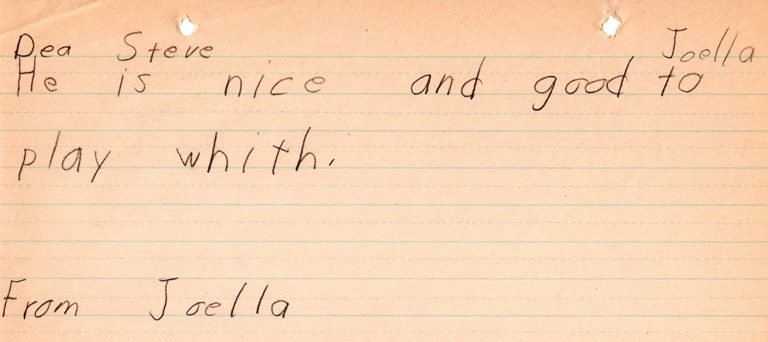 Dea Steve Joella
He is nice and good to
play whith.
From Joella